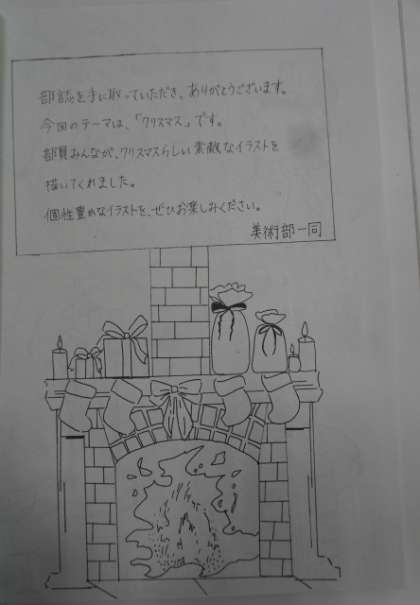 部誌を手に取っていただき、ありがとうございます。
今回のテーマは、「クリスマス」です。
部員みんなが、クリスマスらしい素敵なイラストを
描いてくれました。
個性豊かなイラストを、ぜひお楽しみください。
美術部一同